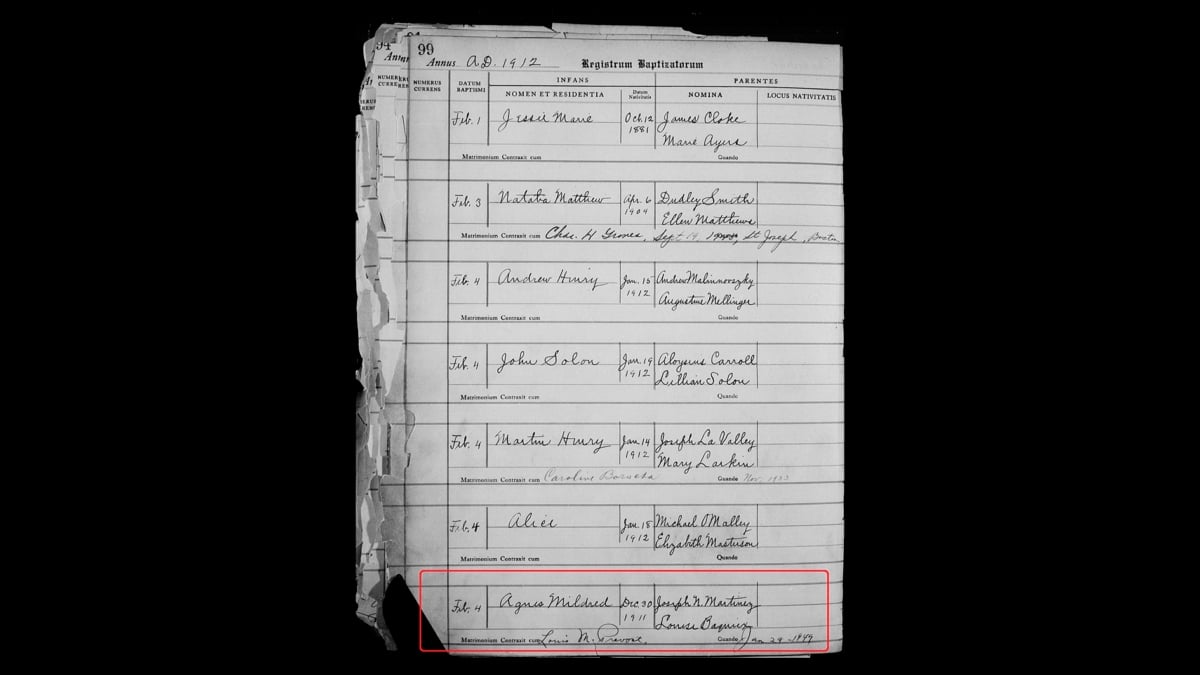 99
Annus A.D. 1912 Registrum Baptizatorum
NUMERUS CURRENS DATUM BAPTISMI INFANS PARENTES
NOMEN ET RESIDENTIA Datum Nativitatis NOMINA LOCUS NATIVITATIS
Feb. 1 Jessie Marie Oct. 12 James Cloke
1881 Marie Ayers
Matrimonium Contraxit cum Quando
Feb. 3 Matthew Apr. 6 Dudley Smith
1904 Ellen Matthews
Matrimonium Contraxit cum Chas. H Sept 19, St Joseph, Boston
Feb. 4 Andrew Henry Jan. 15 Andrew Malinnovszky
1912 Augustine Mellinger
Matrimonium Contraxit cum Quando
Feb. 4 John Solon Jan. 19 Aloysius Carroll
1912 Lillian Solon
Matrimonium Contraxit cum Quando
Feb. 4 Martin Henry Jan. 14 Joseph La Valley
1912 Mary Larkin
Matrimonium Contraxit cum Caroline Quando Nov.
Feb. 4 Alice Jan. 18 Michael O'Malley
1912 Elizabeth Masterson
Matrimonium Contraxit cum Quando
Feb. 4 Agnes Mildred Dec. 30 Joseph N. Martinez
1911 Louise
Matrimonium Contraxit cum Louis M. Provost Quando Jan 29-1949